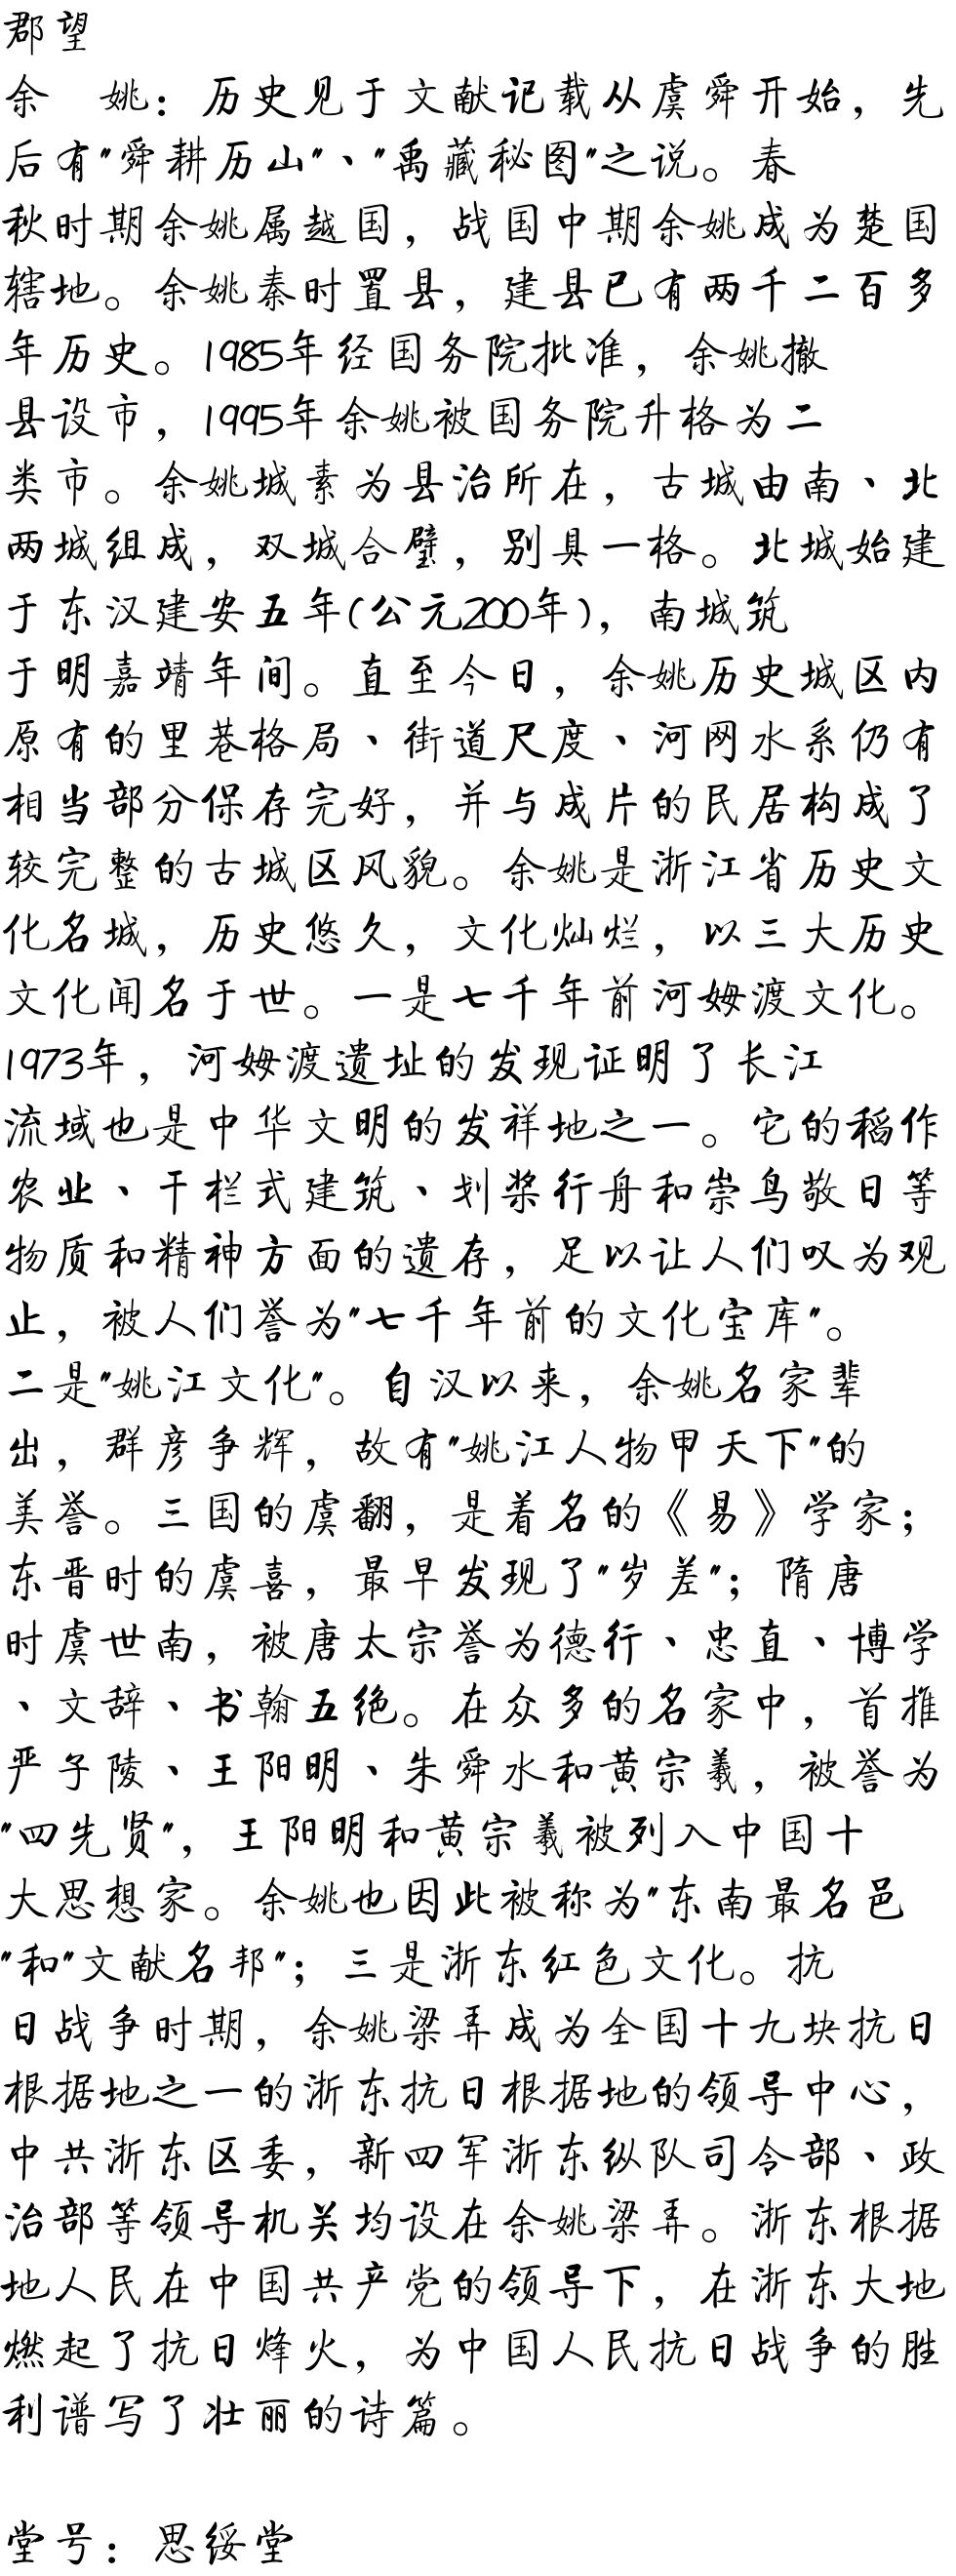 郡望
余　姚：历史见于文献记载从虞舜开始，先
后有"舜耕历山"、"禹藏秘图"之说。春
秋时期余姚属越国，战国中期余姚成为楚国
辖地。余姚秦时置县，建县已有两千二百多
年历史。1985年经国务院批准，余姚撤
县设市，1995年余姚被国务院升格为二
类市。余姚城素为县治所在，古城由南、北
两城组成，双城合璧，别具一格。北城始建
于东汉建安五年(公元200年)，南城筑
于明嘉靖年间。直至今日，余姚历史城区内
原有的里巷格局、街道尺度、河网水系仍有
相当部分保存完好，并与成片的民居构成了
较完整的古城区风貌。余姚是浙江省历史文
化名城，历史悠久，文化灿烂，以三大历史
文化闻名于世。一是七千年前河姆渡文化。
1973年，河姆渡遗址的发现证明了长江
流域也是中华文明的发祥地之一。它的稻作
农业、干栏式建筑、划桨行舟和崇鸟敬日等
物质和精神方面的遗存，足以让人们叹为观
止，被人们誉为"七千年前的文化宝库"。
二是"姚江文化"。自汉以来，余姚名家辈
出，群彦争辉，故有"姚江人物甲天下"的
美誉。三国的虞翻，是着名的《易》学家；
东晋时的虞喜，最早发现了"岁差"；隋唐
时虞世南，被唐太宗誉为德行、忠直、博学
、文辞、书翰五绝。在众多的名家中，首推
严子陵、王阳明、朱舜水和黄宗羲，被誉为
"四先贤"，王阳明和黄宗羲被列入中国十
大思想家。余姚也因此被称为"东南最名邑
"和"文献名邦"；三是浙东红色文化。抗
日战争时期，余姚梁弄成为全国十九块抗日
根据地之一的浙东抗日根据地的领导中心，
中共浙东区委，新四军浙东纵队司令部、政
治部等领导机关均设在余姚梁弄。浙东根据
地人民在中国共产党的领导下，在浙东大地
燃起了抗日烽火，为中国人民抗日战争的胜
利谱写了壮丽的诗篇。
堂号：思绥堂